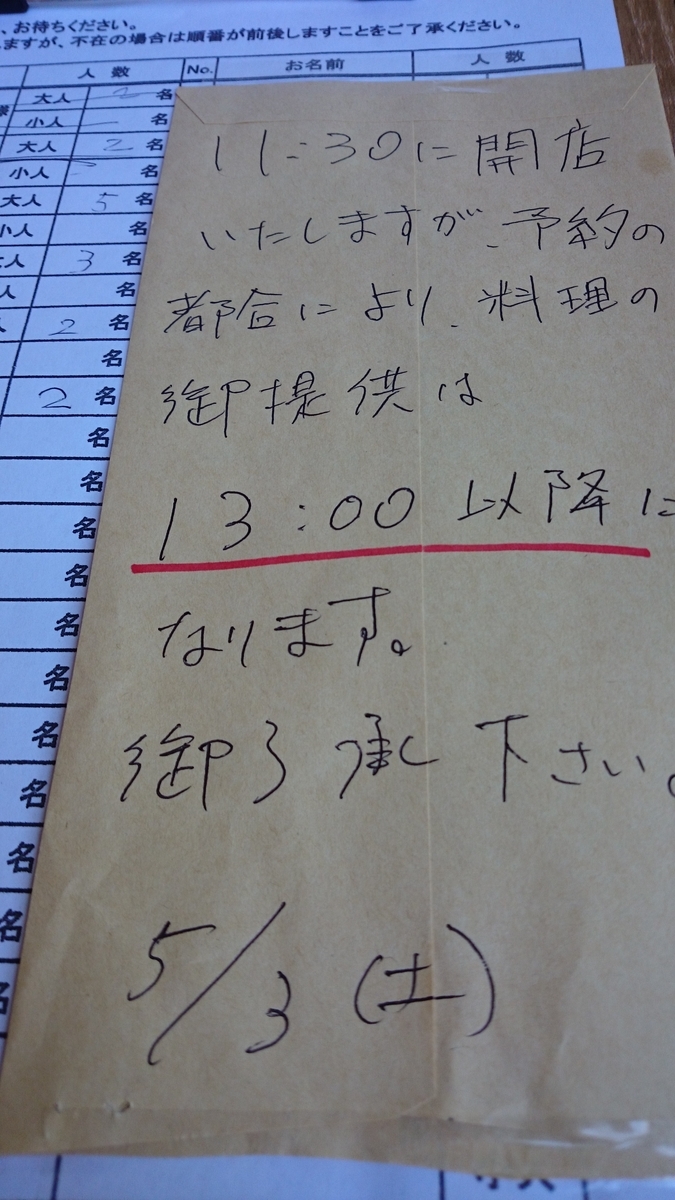 、お待ちください。
ますが、不在の場合は順番が前後しますことをご了承ください。
人 数 No. お名前 人 数
大人 2 名
小人 名
大人 2 名
小人
大人 5 名
小人 名
人 3 名
人 名
2 名
名
2 名
名
名
名
名
名
名
名
名
名
名
名
11:30に開店
いたしますが、予約の
都合により、料理の
御提供は
13:00 以降に
なります。
御了承下さい。
5/3 (土)